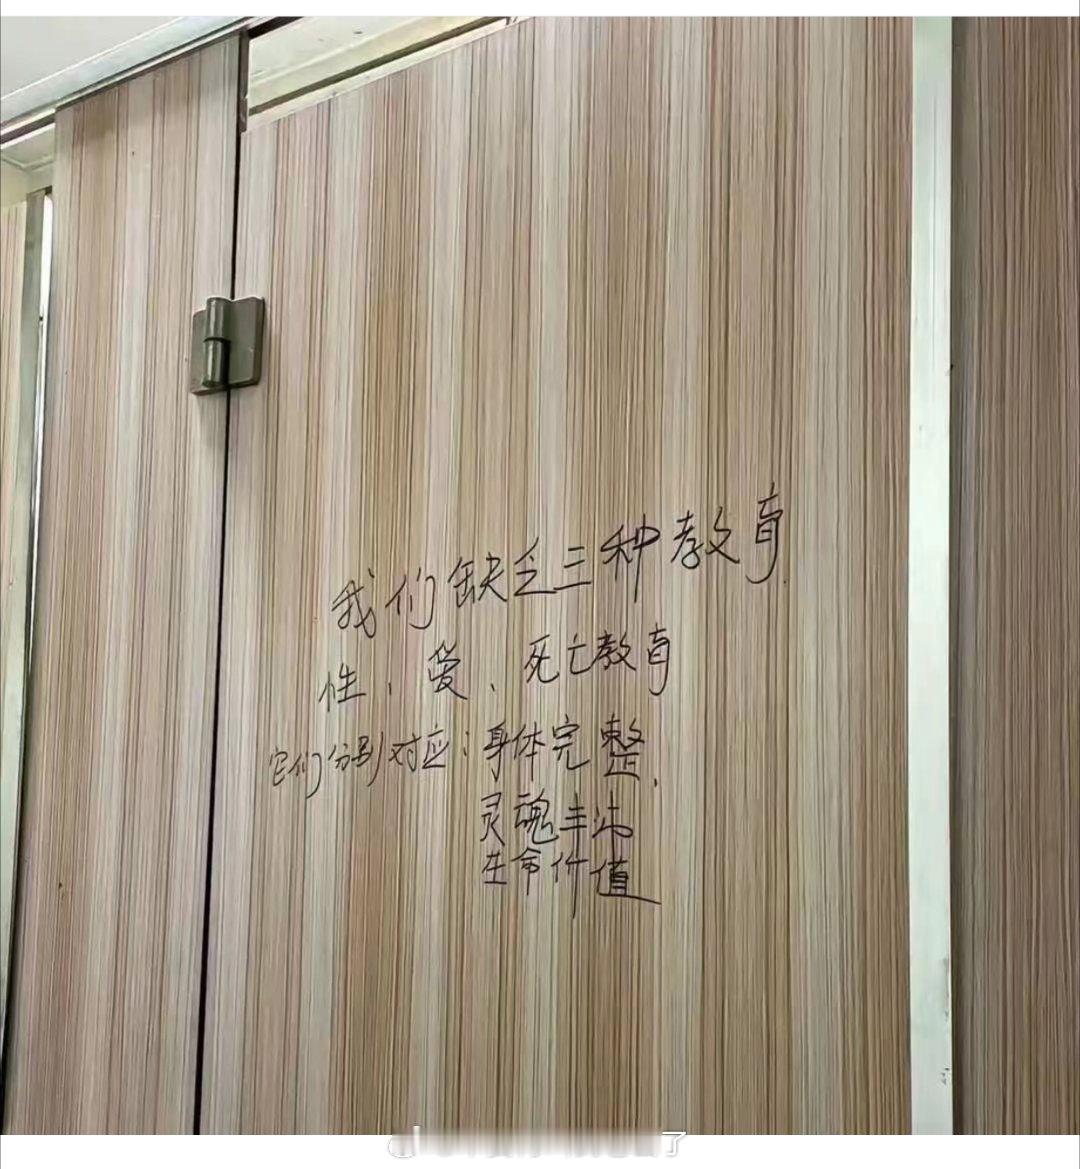 我们缺乏三种教育
性、爱、死亡教育
它们分别对应：身体完整、
灵魂丰沛
生命价值
了